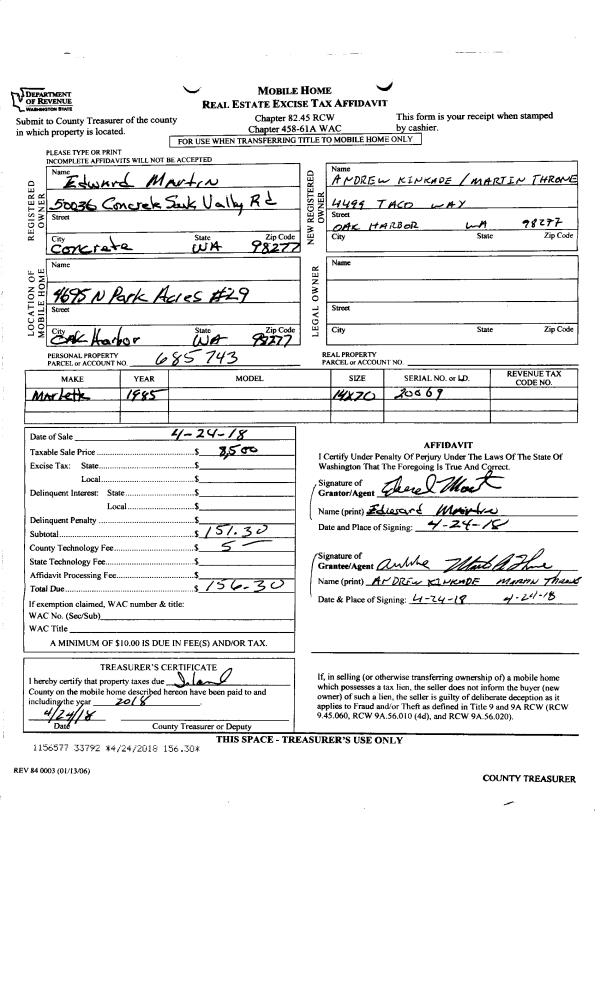 DEPARTMENT
OF REVENUE
WASHINGTON STATE
MOBILE HOME
REAL ESTATE EXCISE TAX AFFIDAVIT
Submit to County Treasurer of the county
in which property is located.
Chapter 82.45 RCW
Chapter 458-61A WAC
This form is your receipt when stamped
by cashier.
FOR USE WHEN TRANSFERRING TITLE TO MOBILE HOME ONLY
PLEASE TYPE OR PRINT
INCOMPLETE AFFIDAVITS WILL NOT BE ACCEPTED
REGISTERED OWNER
Name
Edward Martin
50036 Concrete Sauk Vally Rd
Street
City State Zip Code
Concrete WA 98277
NEW REGISTERED OWNER
Name
ANDREW KINKADE / MARTIN THRONE
4499 TACO WAY
Street
OAK HARBOR WA 98277
City State Zip Code
LOCATION OF MOBILE HOME
Name
4695 N Park Acres #29
Street
City State Zip Code
Oak Harbor WA 98277
LEGAL OWNER
Name
Street
City State Zip Code
PERSONAL PROPERTY
PARCEL or ACCOUNT NO. 685743
REAL PROPERTY
PARCEL or ACCOUNT NO.
MAKE YEAR MODEL SIZE SERIAL NO. or I.D. REVENUE TAX CODE NO.
Marlett 1985 14X70 20069
Date of Sale 4-24-18
Taxable Sale Price $ 8,500
Excise Tax: State $
Local $
Delinquent Interest: State $
Local $
Delinquent Penalty $
Subtotal $ 151.30
County Technology Fee $ 5 —
State Technology Fee $
Affidavit Processing Fee $
Total Due $ 156.30
If exemption claimed, WAC number & title:
WAC No. (Sec/Sub)
WAC Title
A MINIMUM OF $10.00 IS DUE IN FEE(S) AND/OR TAX.
AFFIDAVIT
I Certify Under Penalty Of Perjury Under The Laws Of The State Of
Washington That The Foregoing Is True And Correct.
Signature of
Grantor/Agent
Name (print) Edward Martin
Date and Place of Signing: 4-24-18
Signature of
Grantee/Agent
Name (print) ANDREW KINKADE MARTIN THRONE
Date & Place of Signing: 4-24-18 4-24-18
TREASURER'S CERTIFICATE
I hereby certify that property taxes due Island
County on the mobile home described hereon have been paid to and
including the year 2018
4/24/18
Date County Treasurer or Deputy
If, in selling (or otherwise transferring ownership of) a mobile home
which possesses a tax lien, the seller does not inform the buyer (new
owner) of such a lien, the seller is guilty of deliberate deception as it
applies to Fraud and/or Theft as defined in Title 9 and 9A RCW (RCW
9.45.060, RCW 9A.56.010 (4d), and RCW 9A.56.020).
THIS SPACE - TREASURER'S USE ONLY
1156577 33792 *4/24/2018 156.30*
REV 84 0003 (01/13/06)
COUNTY TREASURER